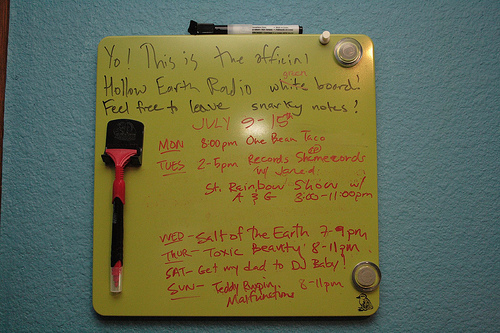 Yo! This is the official
green
Hollow Earth Radio white board!
Feel free to leave snarky notes!
JULY 9-15th
MON 8:00pm One Bean Taco
TUES 2-5pm Records
w/ Jared
St. Rainbow Show w/
A & G 8:00-11:00pm
WED- Salt of the Earth 7-9pm
THUR- Toxic Beauty 8-11pm
SAT- Get my dad to DJ Baby!
SUN- Teddy 8-11pm
Malfunctions